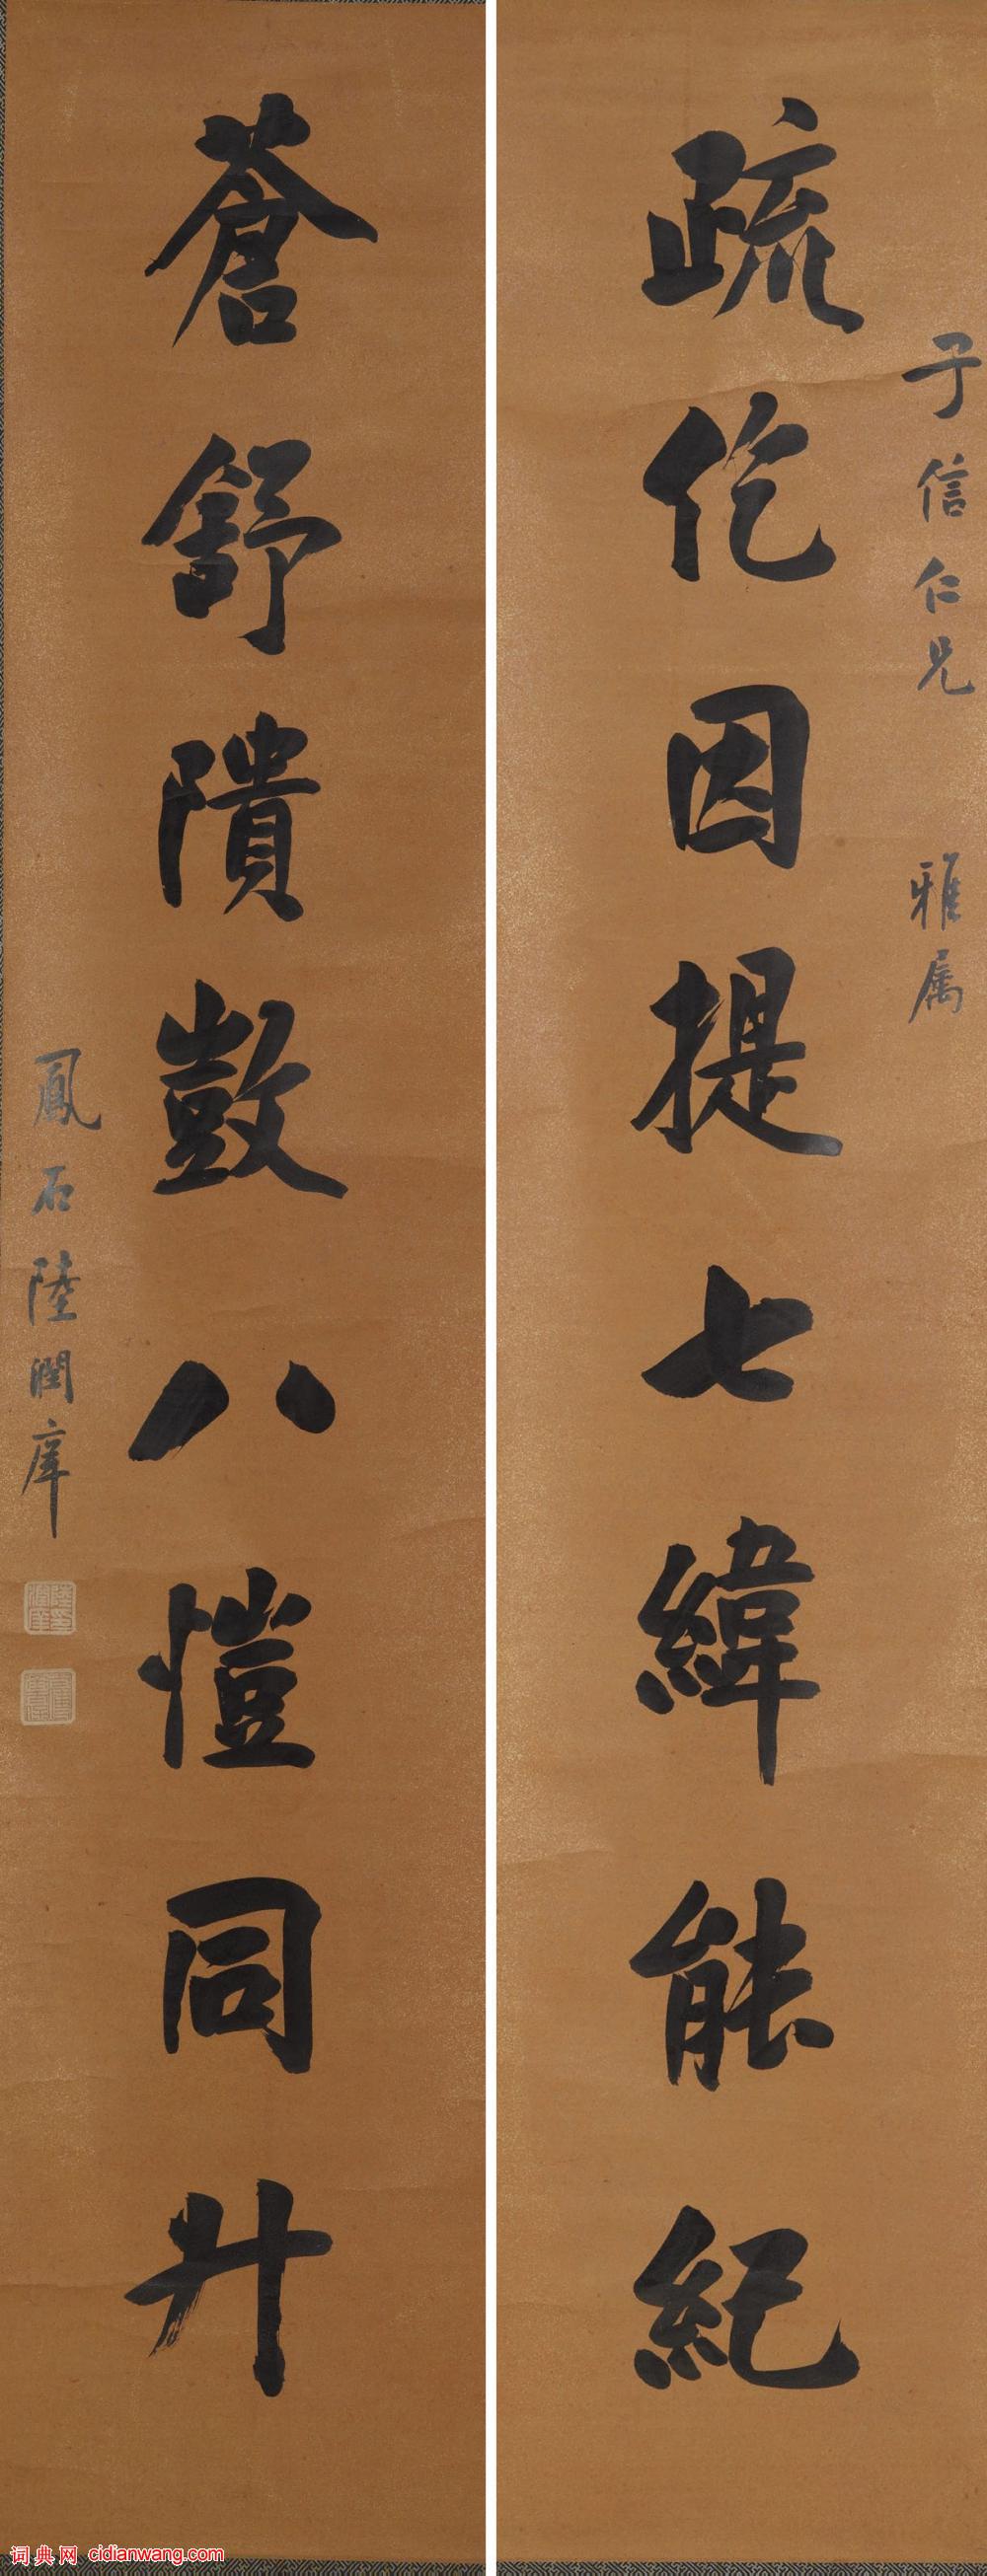 疏仡因提七緯能紀
子信仁兄 雅属
蒼舒隤敳八愷同升
鳳石陸潤庠
词典网 cidianwang.com